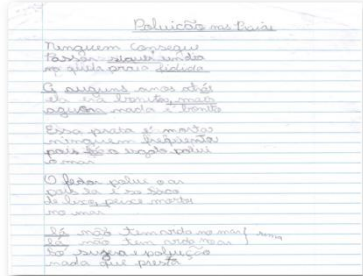 Poluicão nas Praias
Ninguem consegue
Passar sequer
praia fidida
G auguns anos atrás
ela era bonita, mas
agora nada é bonito
Essa praia é morta
ninguem freqüenta
pois só o esgoto polui
o mar
O fedor polue o ar
pois la é só saco
de lixo, peixe morto
no mar
Lá não tem vida no mar
Lá não tem vida no ar
só sugeira e poluição
nada que presta